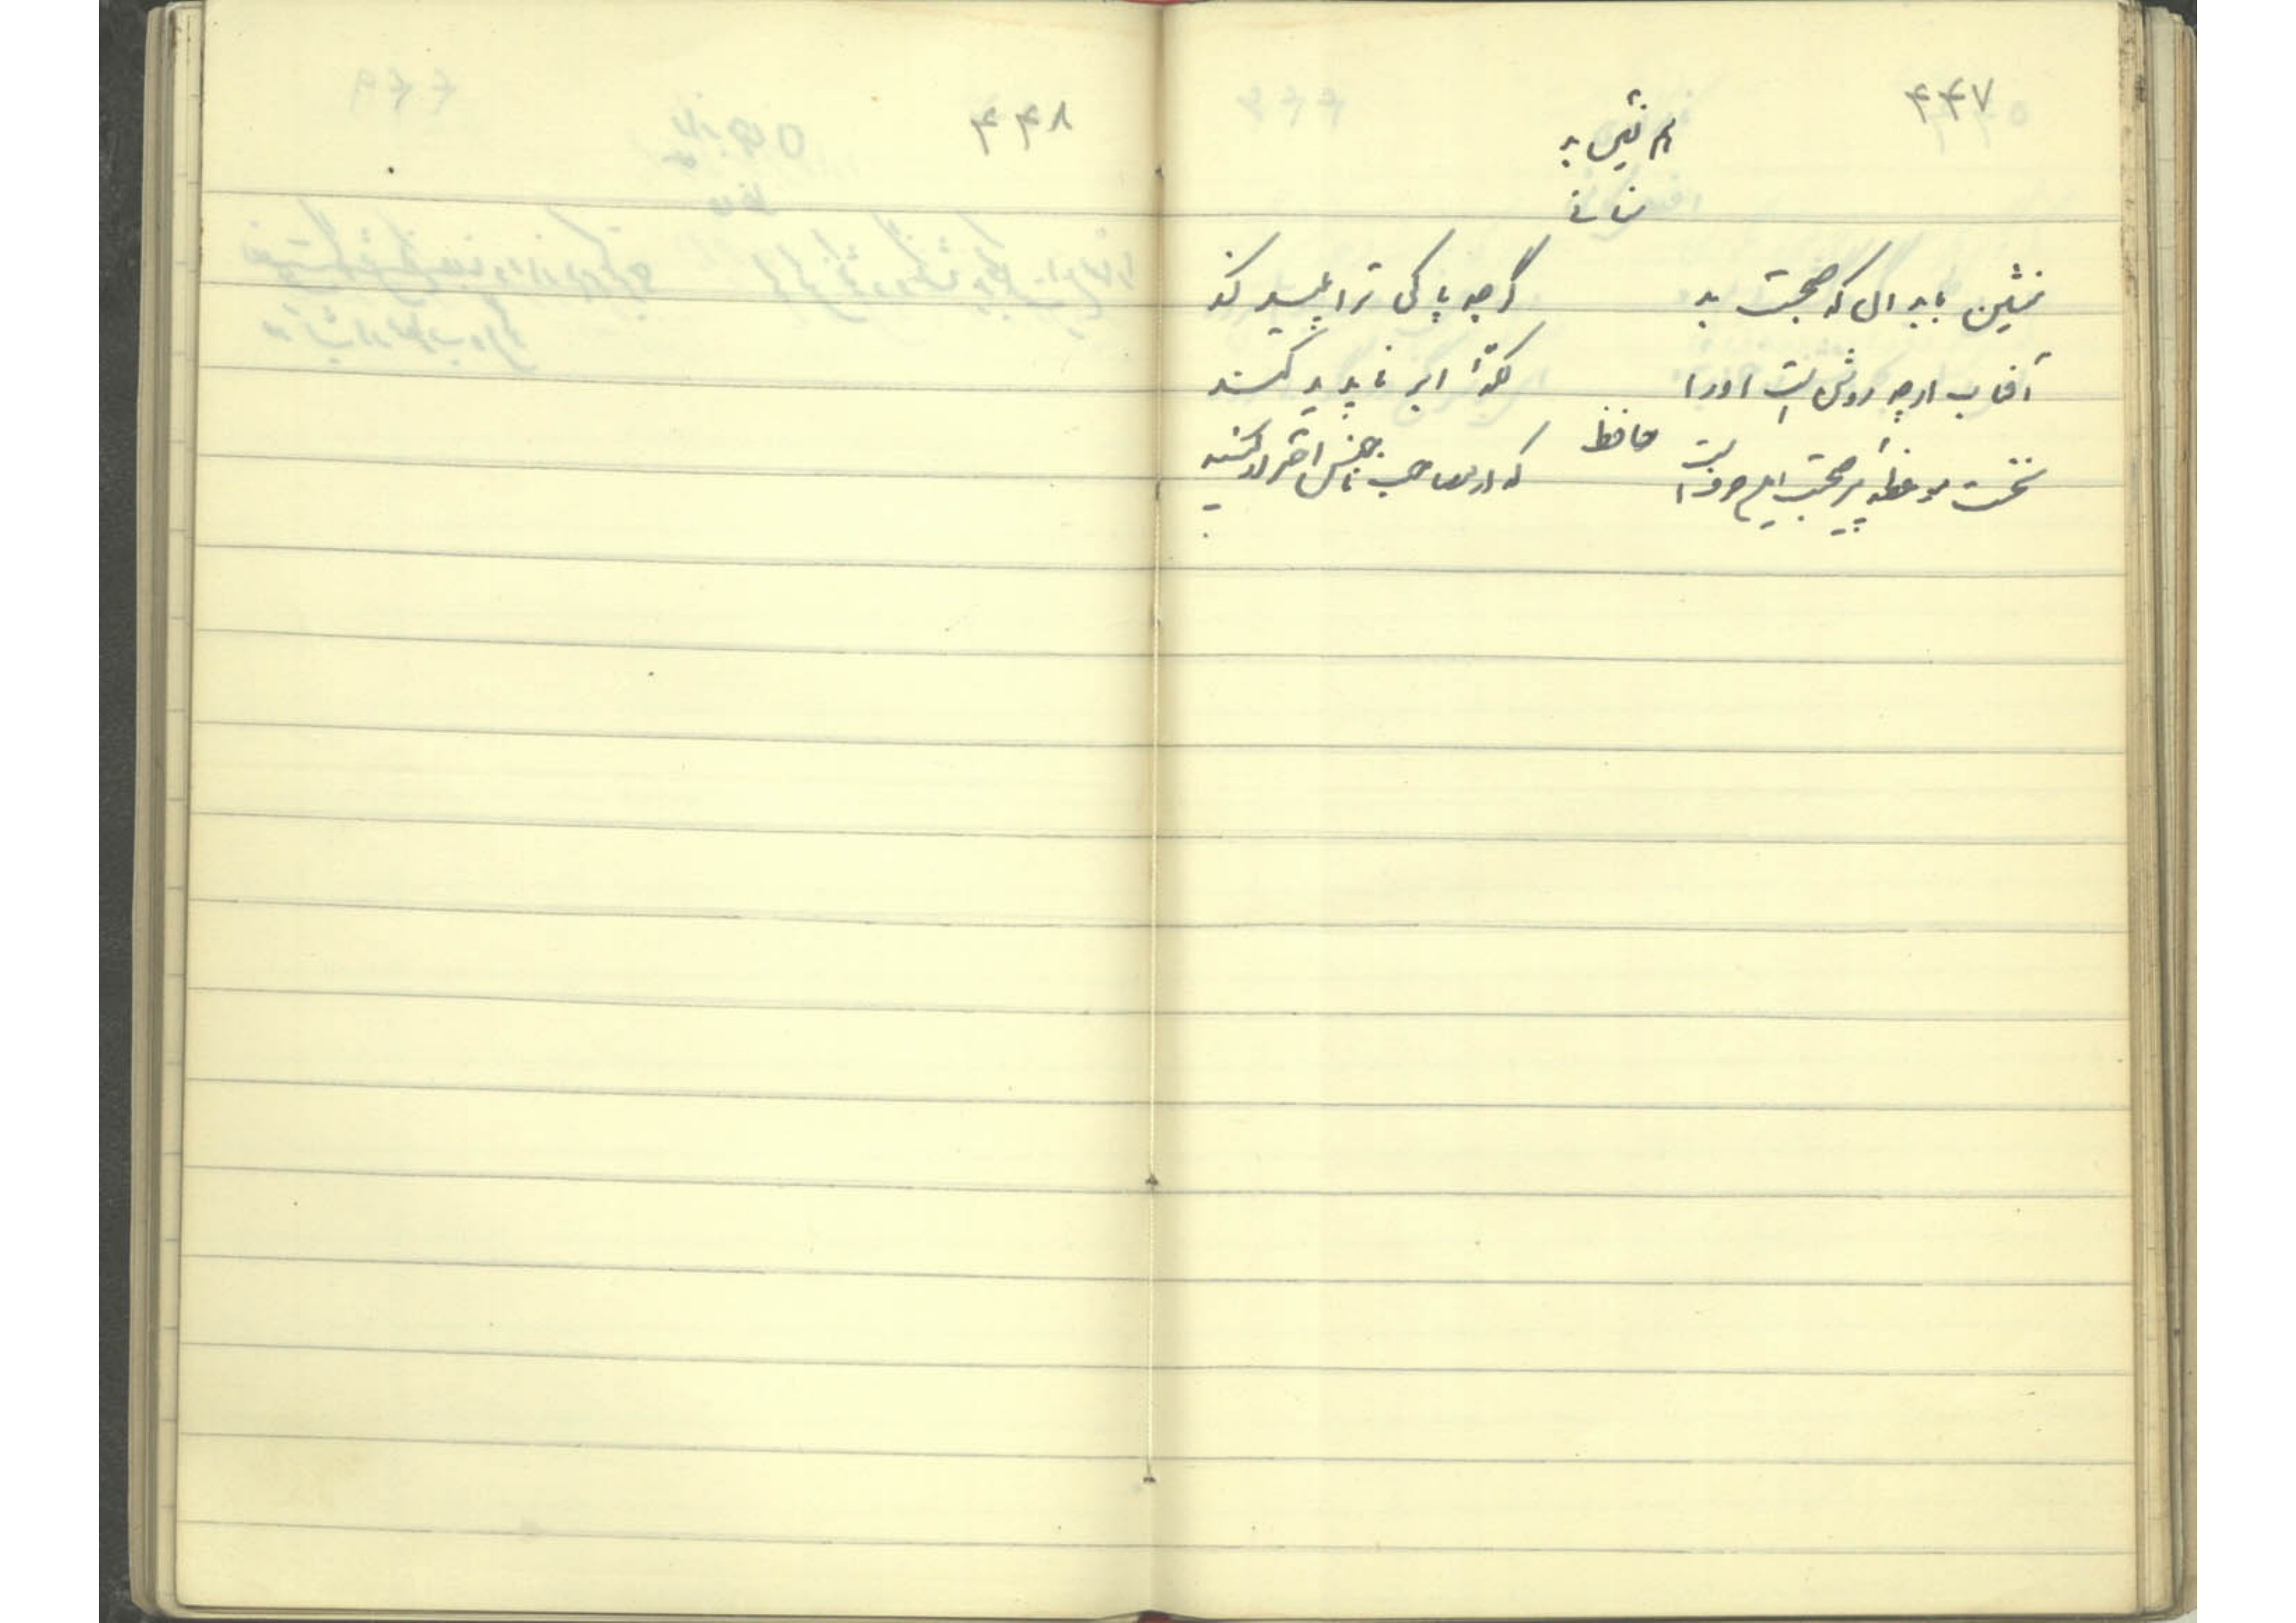 ۴۴۷
هم نشین بد
سنائی
منشین با بدان که صحبت بد گرچه پاکی ترا پلید کند
آفتاب ارچه روشن است اورا لکهٔ ابر ناپدید کند
حافظ
نخست موعظهٔ پیر صحبت این حرف است که از مصاحب ناجنس احتراز کنید
۴۴۸